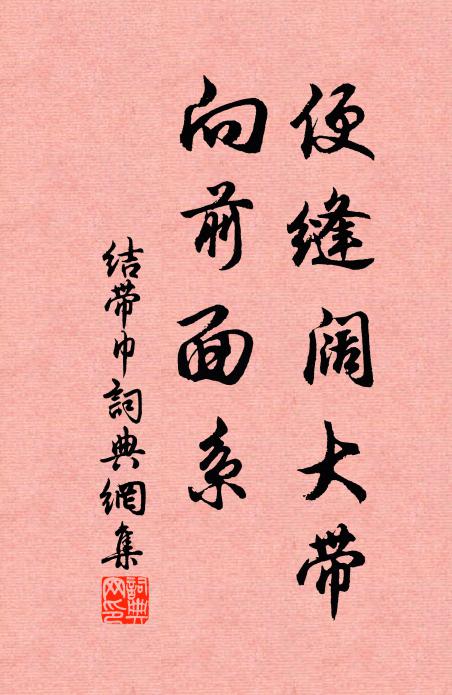 便缝阔大带
向前面系
结带巾詞典網集
詞典网印